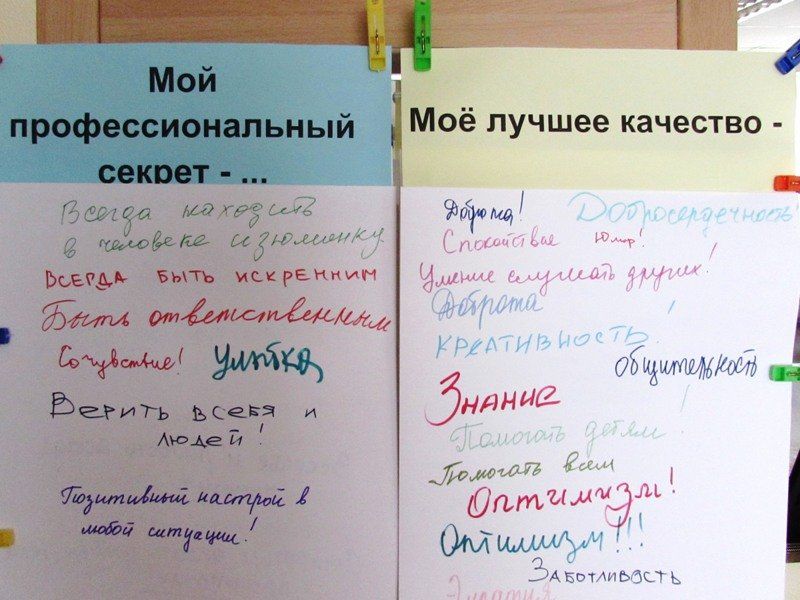 Мой
профессиональный
секрет - ...
Всегда находить
в человеке изюминку
ВСЕГДА БЫТЬ ИСКРЕННИМ
Быть ответственным
Сочувствие! Улыбка
ВЕРИТЬ В СЕБЯ И
ЛЮДЕЙ!
Позитивный настрой в
любой ситуации!
Моё лучшее качество -
Доброта! Добросердечность!
Спокойствие Юмор!
Умение слушать других!
Доброта
КРЕАТИВНОСТЬ!
общительность
Знание
Помогать детям!
Помогать всем
Оптимизм!
Оптимизм!!!
ЗАБОТЛИВОСТЬ
Эмпатия